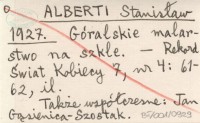 ALBERTI Stanisław
1927. Góralskie malar-
stwo na szkle. — Rekord
Świat Kobiecy 7, nr 4: 61-
62, il.
Także współczesne: Jan
Gąsienica-Szostak.